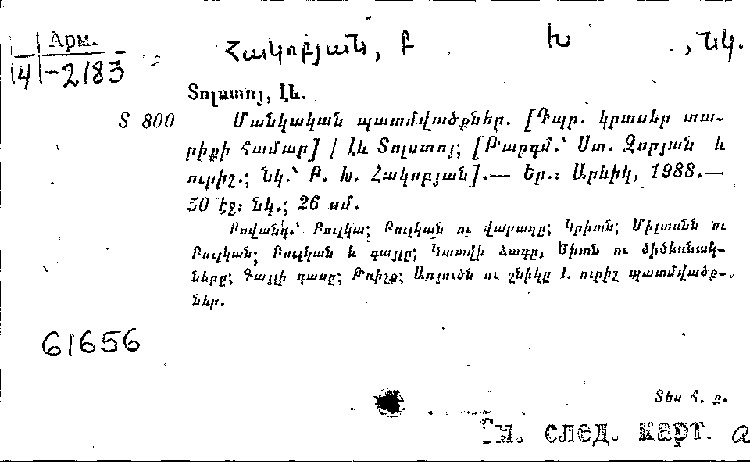 Арм.
4-2183
Հակոբյան, Բ Խ , նկ.
Տոլստոյ, Լև.
Տ 800 Մանկական պատմվածքներ. [Դպր. կրտսեր տա-
րիքի համար] / Լև Տոլստոյ; [Թարգմ.՝ Ստ. Զորյան և
ուրիշ.; նկ.՝ Բ. Խ. Հակոբյան].— Եր.: Արևիկ, 1988.—
30 էջ: նկ.; 26 սմ.
Բովանդ.՝ Բուլկա; Բուլկան ու վարազը; Կրիան; Միլտոնն ու
Բուլկան; Բուլկան և գայլը; Կատվի ձագը, Ծիտն ու ծիծեռնակ-
ները; Գայլի դասը; Թռիչք; Առյուծն ու շնիկը և ուրիշ պատմվածք-
ներ.
61656
Տես հ. ք.
См. след. карт. а